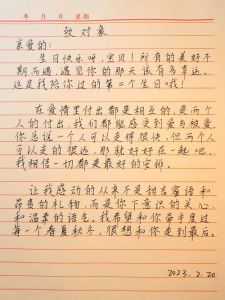 年 月 日 星期
致对象
亲爱的:
生日快乐呀,宝贝!所有的美好不
期而遇,遇见你的那天该有多幸运。
这是我陪你过的第二个生日哦!
在爱情里付出都是相互的,是两个
人的付出,我们都能感受到爱与被爱,
你总说一个人可以走得很快,但两个人
可以走的很远,那就好好在一起吧,
我相信一切都是最好的安排。
让我感动的从来不是甜言蜜语和
昂贵的礼物,而是你下意识的关心
和温柔的语气,我希望和你牵手度过
每一个春夏秋冬,很想和你走到最后。
2023.2.20